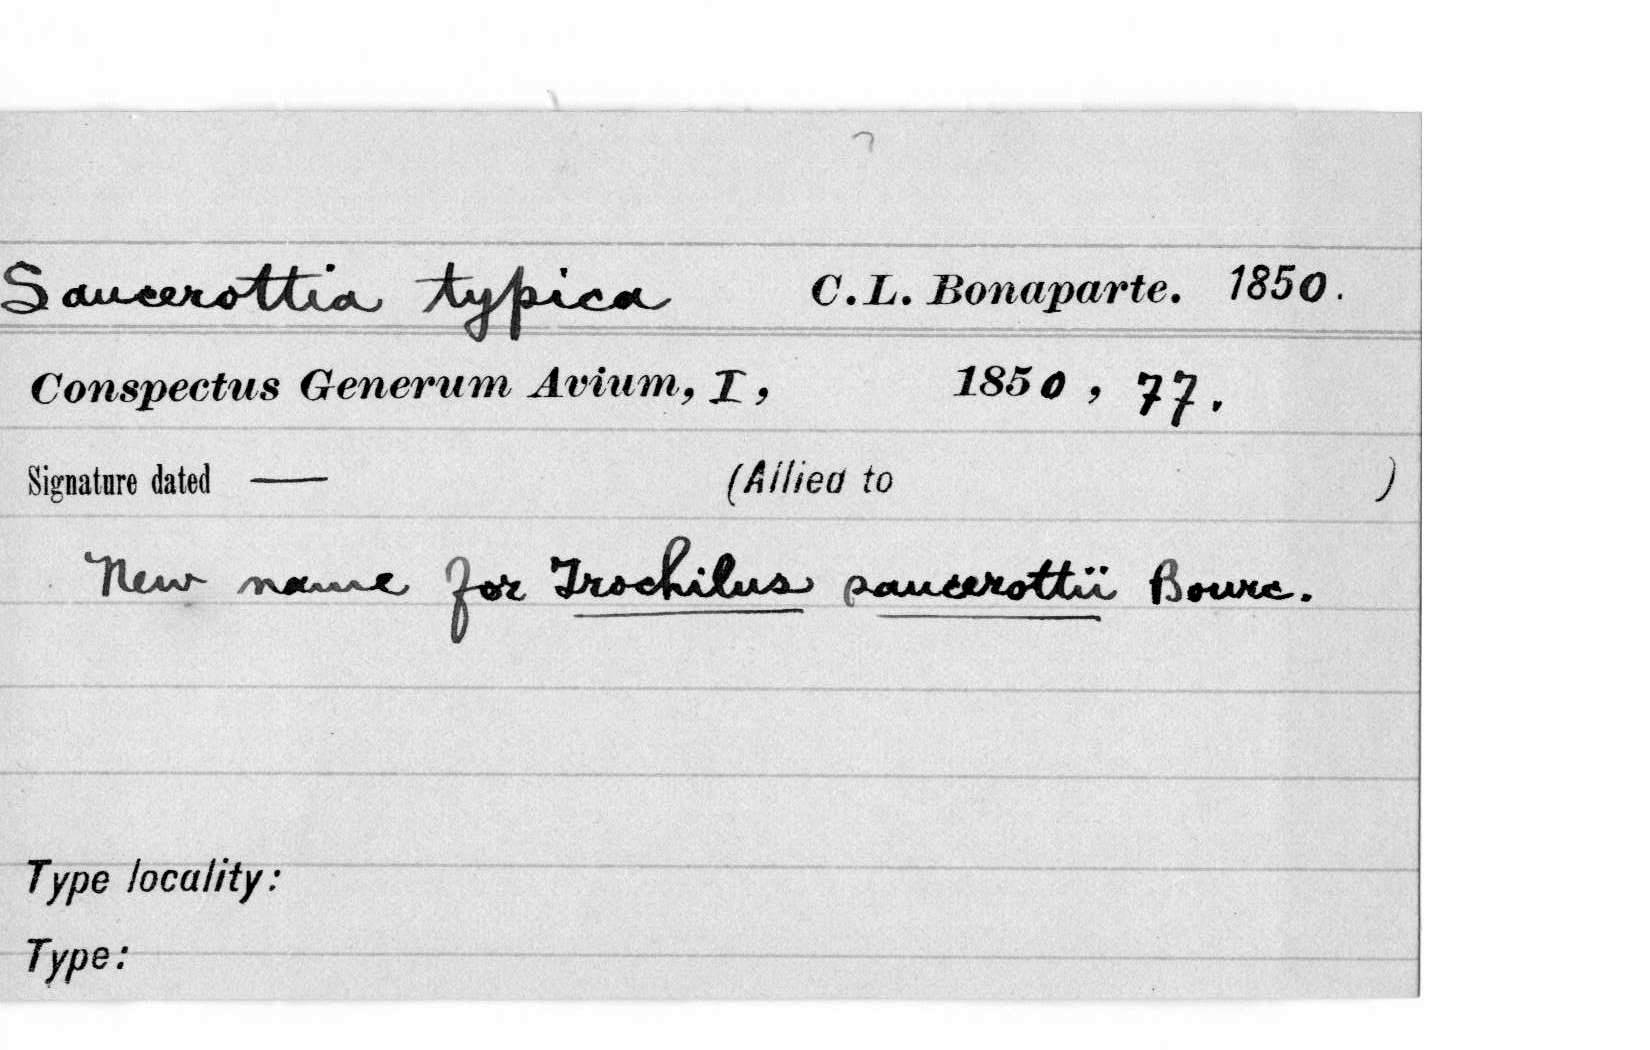 Saucerottia typica C. L. Bonaparte. 1850.
Conspectus Generum Avium, I, 1850, 77.
Signature dated — (Allied to )
New name for Trochilus saucerottii Bourc.
Type locality:
Type: